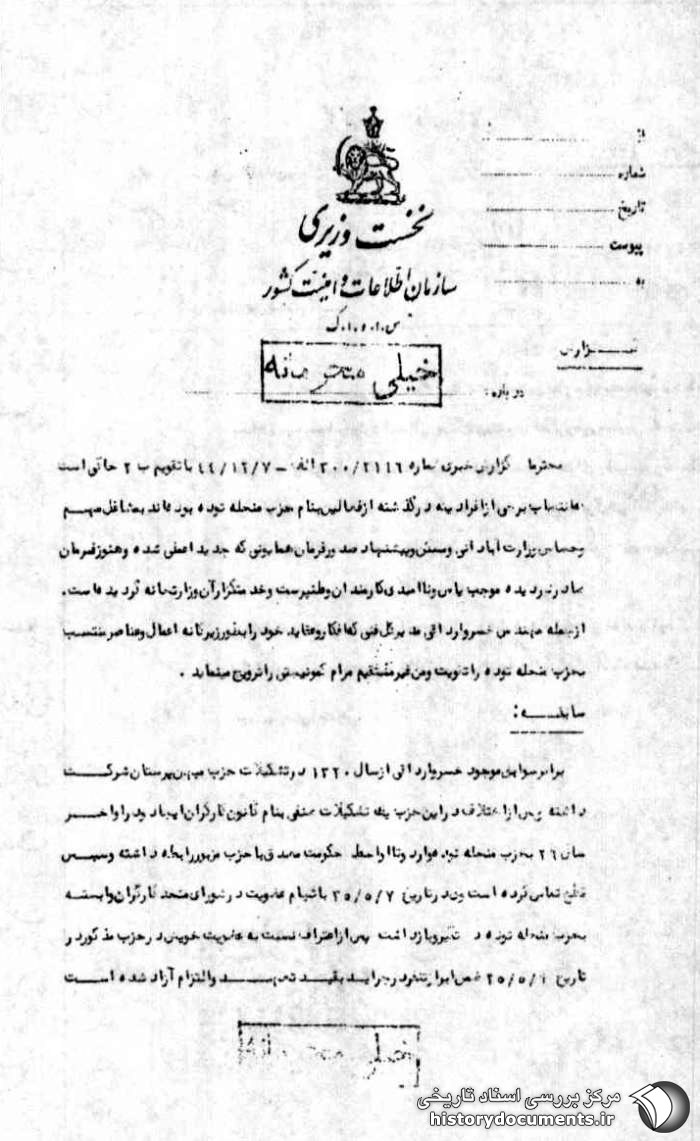 از
شماره
تاریخ
پیوست
به
نخست وزیری
سازمان اطلاعات و امنیت کشور
س.ا.و.ا.ک
گزارش
خیلی محرمانه
درباره:
محترما گزارش خبری شماره ۳۰۰/۲۱۱۶ الف ـ ۴۴/۱۲/۷ با تقویم ب ۲ حاکی است
انتصاب برخی از افرادیکه در گذشته از فعالین بنام حزب منحله توده بوده‌اند بمشاغل مهم
و حساس وزارت آبادانی و مسکن و پیشنهاد صدور فرمان همایونی که جدیدا عملی شده و هنوز فرمان
صادر نگردیده موجب یاس و ناامیدی کارمندان وطنپرست و خدمتگزار آن وزارتخانه گردیده است.
ازجمله مهندس خسرو اردانی مدیرکل فنی که افکار و عقاید خود را بطور زیرکانه اعمال و عناصر منتسب
بحزب منحله توده را تقویت و من غیر مستقیم مرام کمونیستی را ترویج مینماید.
سابقه:
برابر سوابق موجود خسرو اردانی از سال ۱۳۲۰ در تشکیلات حزب میهن پرستان شرکت
داشته و پس از ائتلاف در این حزب یک تشکیلات صنفی بنام کانون کارگران ایجاد و در اواخر
سال ۲۶ بحزب منحله توده وارد و تا اواسط حکومت مصدق با حزب مزبور رابطه داشته و سپس
قطع تماس کرده است و در تاریخ ۳۵/۵/۷ باتهام عضویت در شورای متحد کارگران وابسته
بحزب منحله توده دستگیر و بازداشت پس از اعتراف نسبت به عضویت خویش در حزب مذکور در
تاریخ ۳۵/۵/۱ ضمن ابراز تنفر در جراید بقید تعهد و التزام آزاد شده است
خیلی محرمانه
مرکز بررسی اسناد تاریخی
historydocuments.ir